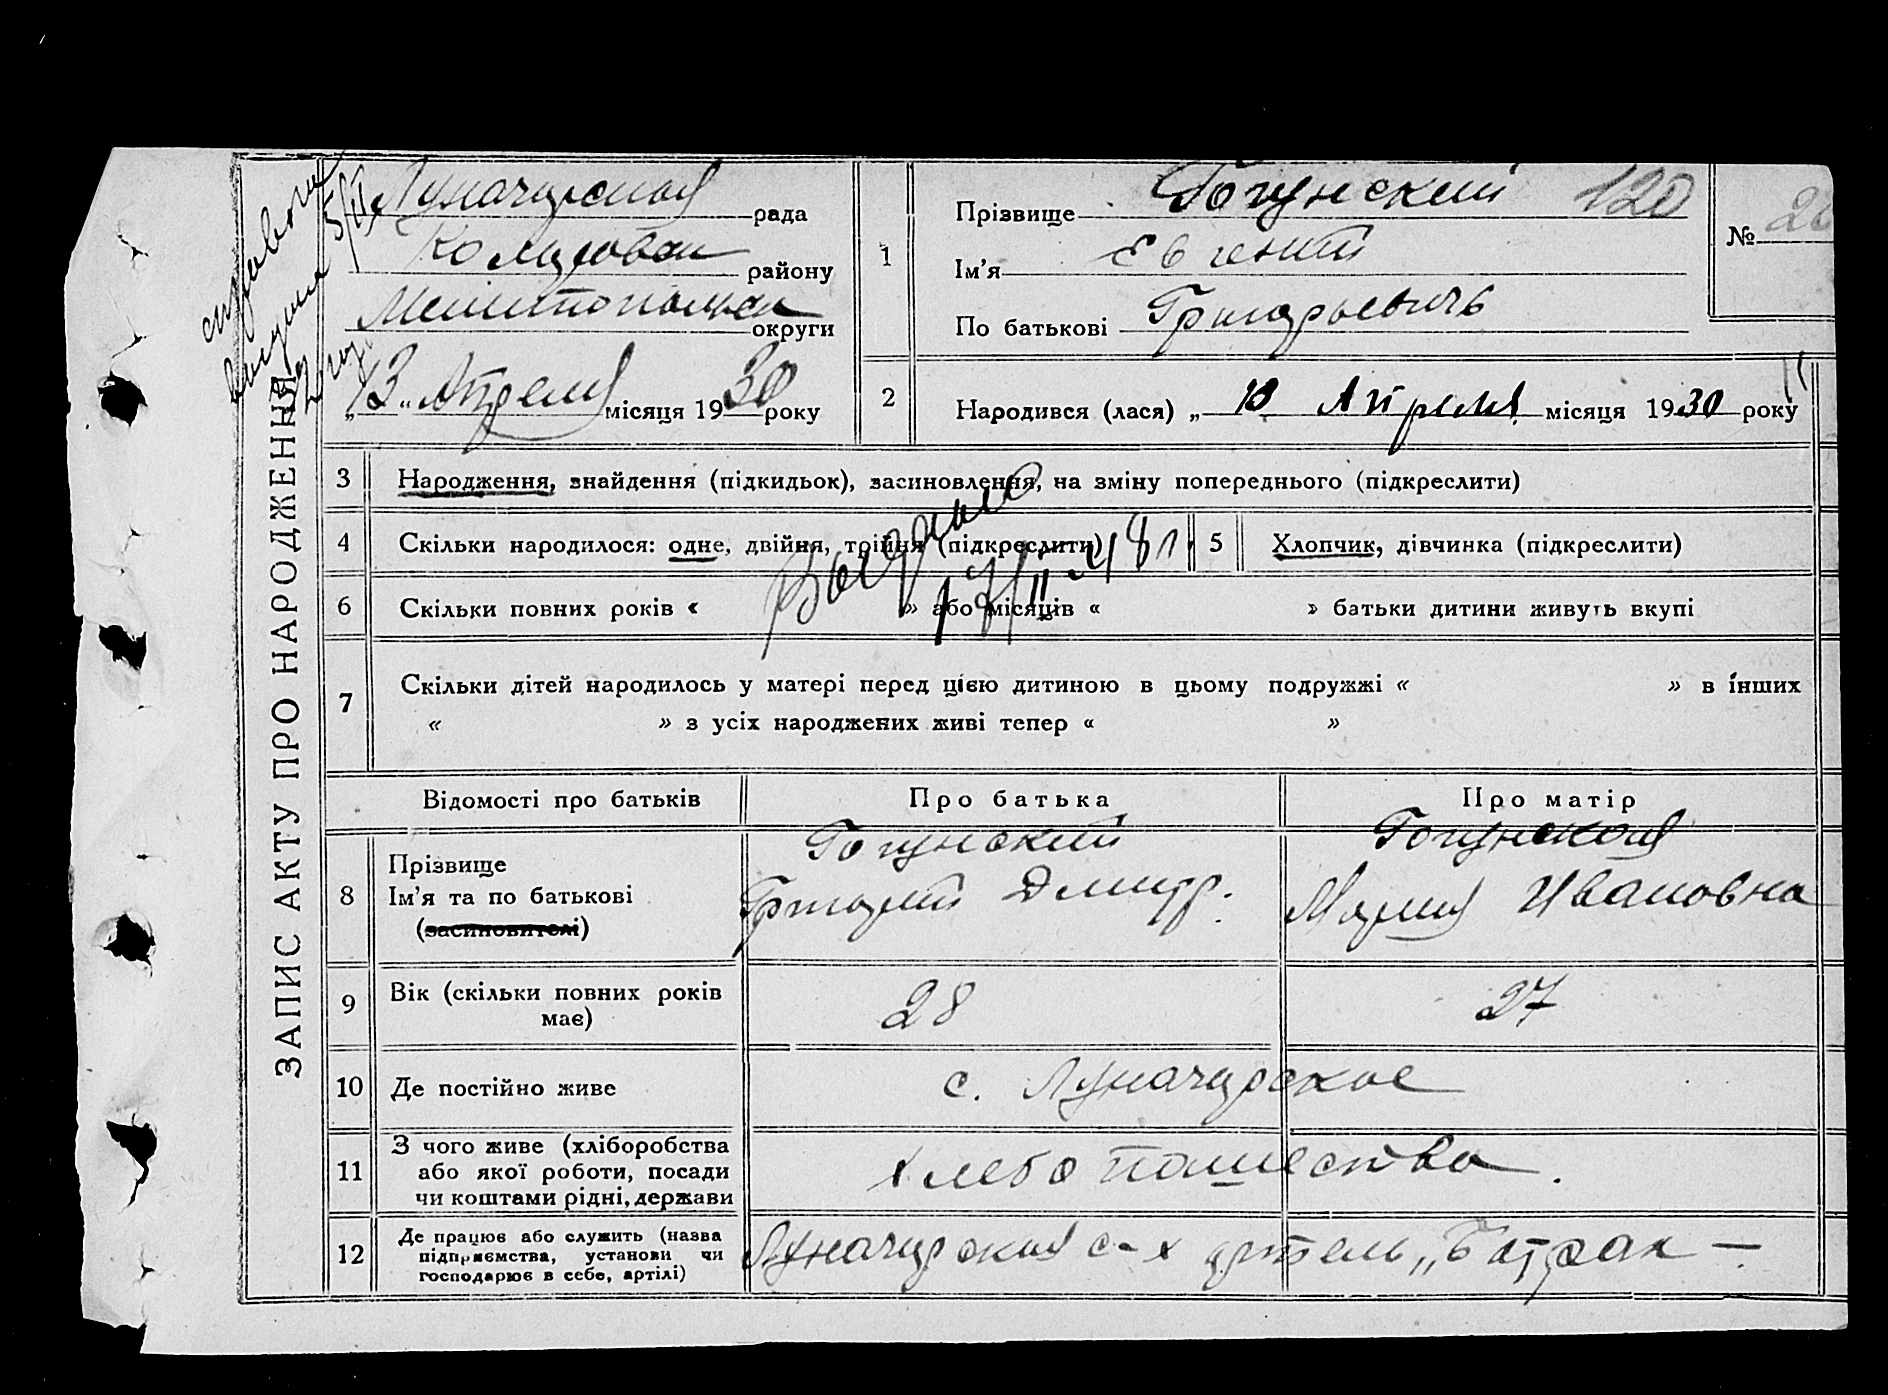 ЗАПИС АКТУ ПРО НАРОДЖЕННЯ
Луначарская рада
району
Мелитопольск округи
„13“ Апреля місяця 1930 року
1
Прізвище Гогунский 120
Ім'я Евгений
По батькові Григорьевичь
№
2
Народився (лася) „13 Апреля місяця 1930 року
3 Народження, знайдення (підкидьок), засиновлення, на зміну попереднього (підкреслити)
4 Скільки народилося: одне, двійня, трійня (підкреслити)
5 Хлопчик, дівчинка (підкреслити)
6 Скільки повних років « » або місяців « » батьки дитини живуть вкупі
7 Скільки дітей народилось у матері перед цією дитиною в цьому подружжі « » в інших
« » з усіх народжених живі тепер « »
Відомості про батьків Про батька Про матір
8
Прізвище
Ім'я та по батькові
(засиновителі)
Гогунский
Григорий Дмитр.
Гогунская
Мария Ивановна
9 Вік (скільки повних років
має)
28 27
10 Де постійно живе с. Луначарское
11 З чого живе (хліборобства
або якої роботи, посади
чи коштами рідні, держави
хлебопашества.
12 Де працює або служить (назва
підприємства, установи чи
господарює в себе, артілі)
Луначарская с-х артель „Батрак —